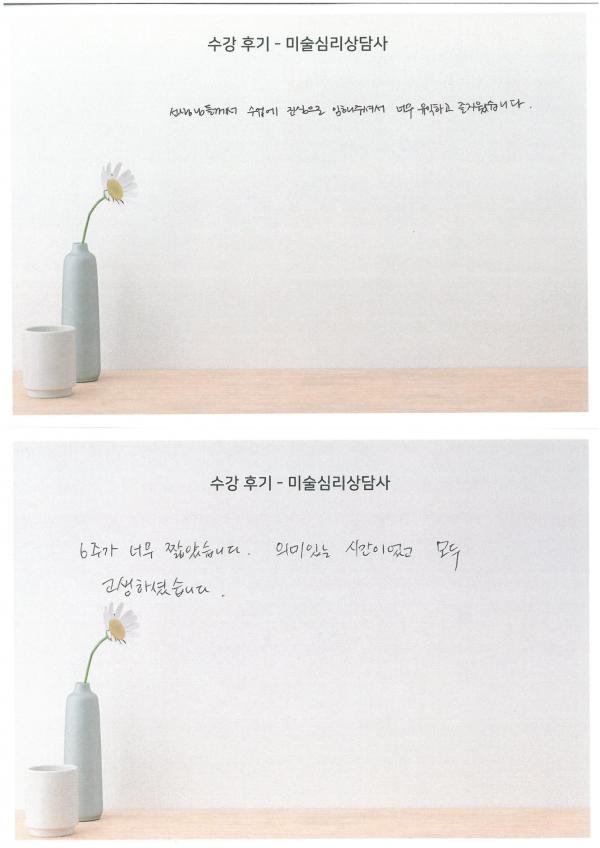 수강 후기 – 미술심리상담사
선생님들께서 수업에 진심으로 임해주셔서 너무 유익하고 즐거웠습니다.
수강 후기 – 미술심리상담사
6주가 너무 짧았습니다. 의미있는 시간이었고 모두
고생하셨습니다.